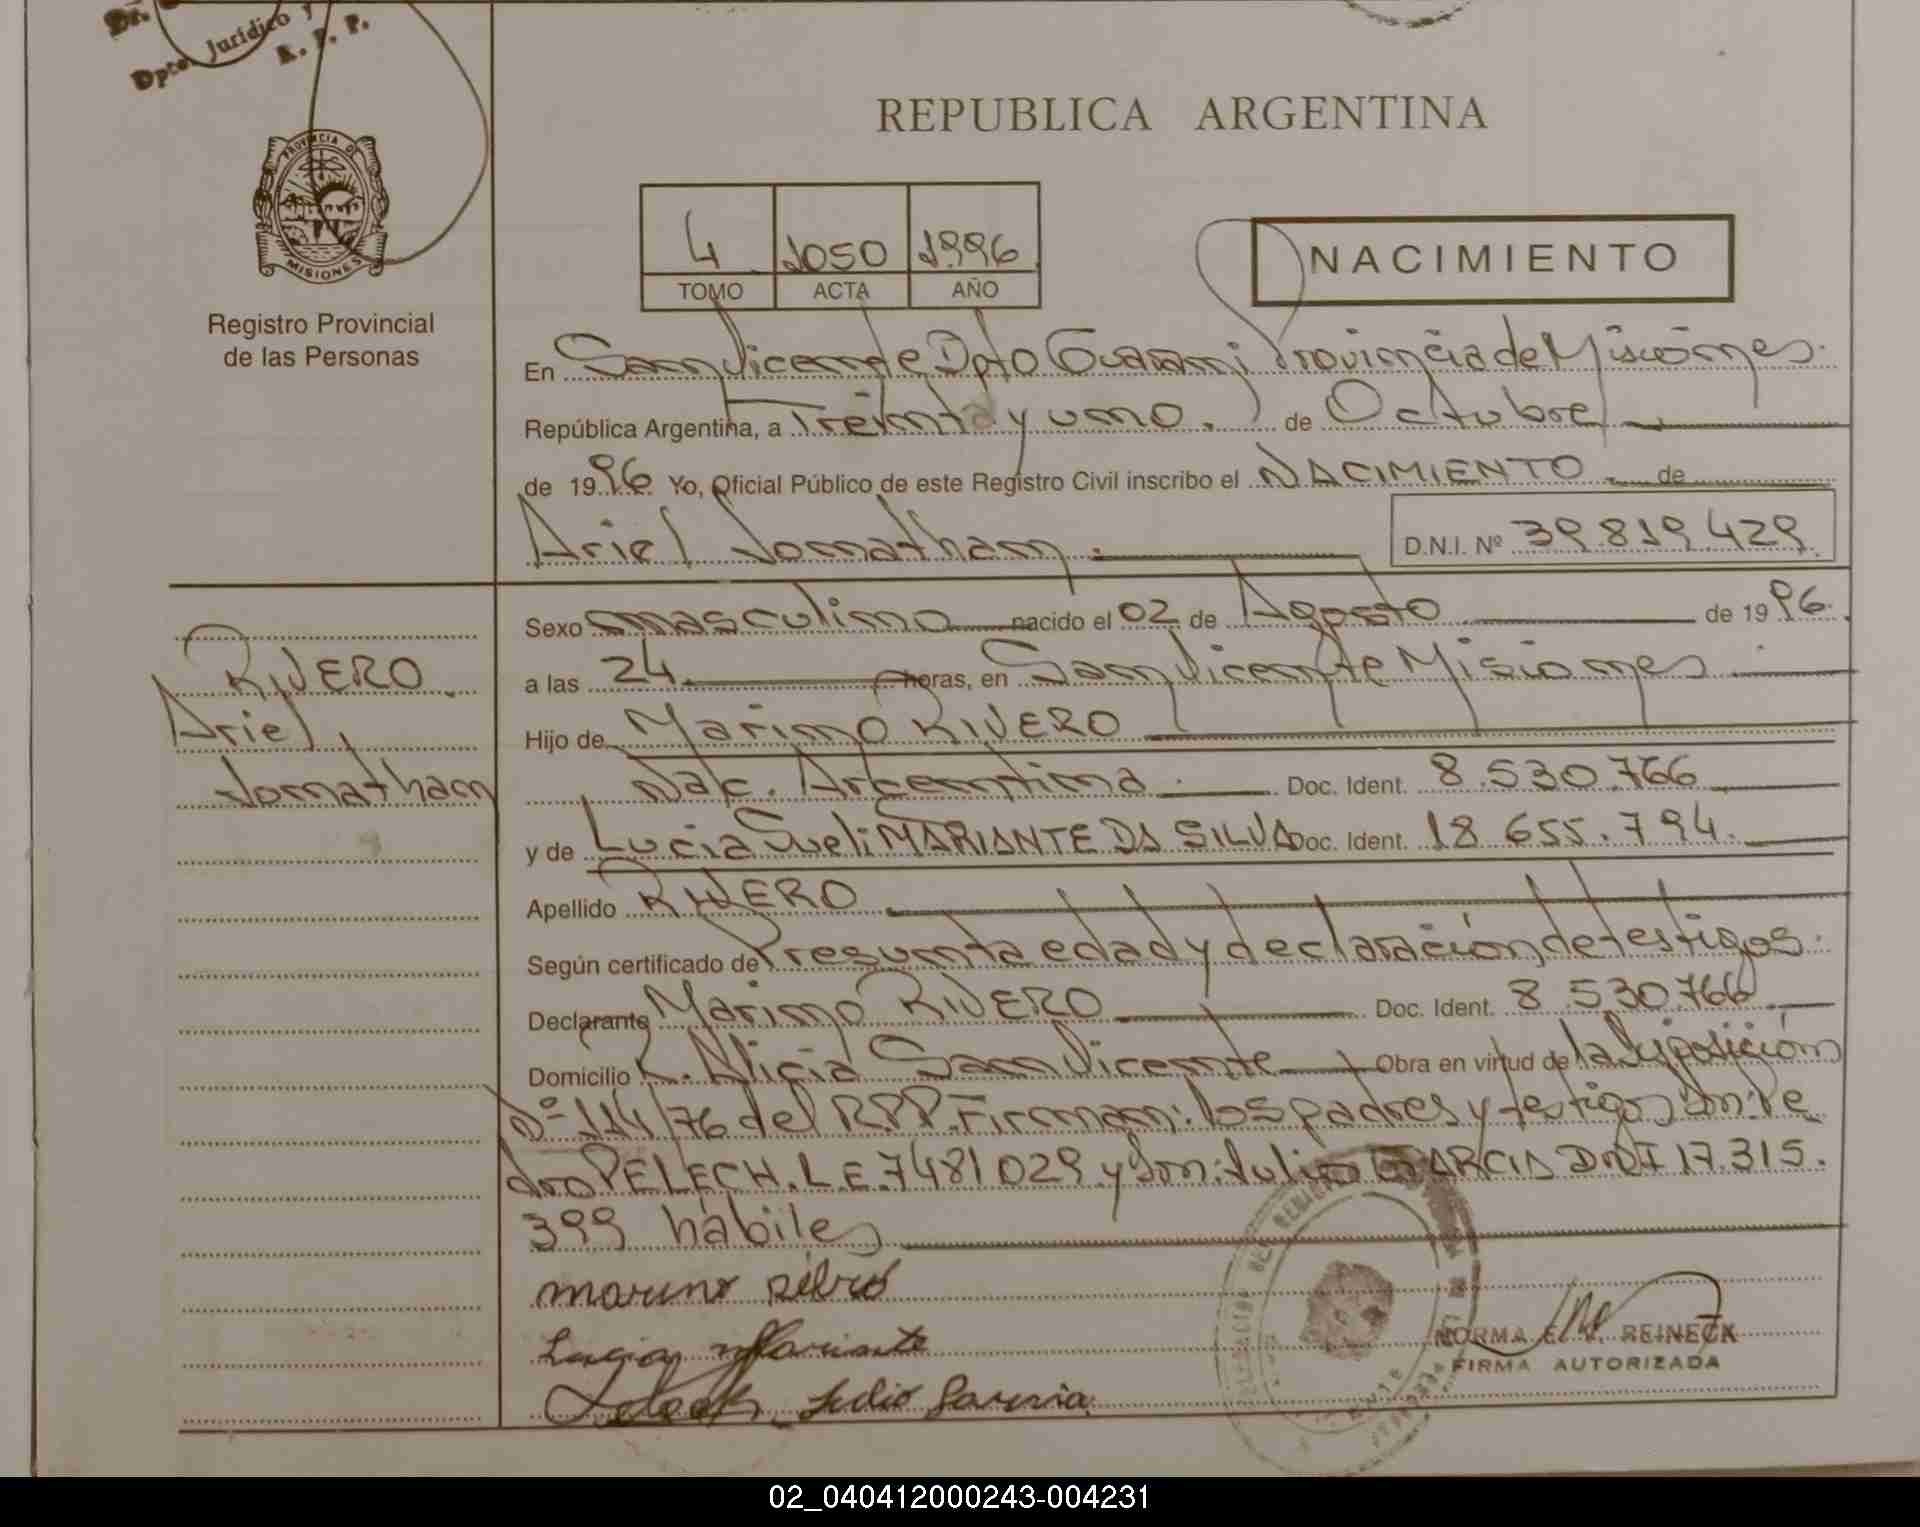 Dr.
Dpto. Jurídico y
R. P. P.
PROVINCIA DE
MISIONES
Registro Provincial
de las Personas
REPUBLICA ARGENTINA
4 1050 1996
TOMO ACTA AÑO
NACIMIENTO
En San Vicente Dpto Guarani Provincia de Misiones.
República Argentina, a Treinta y uno. de Octubre
de 1996 Yo, Oficial Público de este Registro Civil inscribo el NACIMIENTO de
Ariel Jonathan. D.N.I. Nº 39.819.429
RIVERO
Ariel
Jonathan
Sexo masculino nacido el 02 de Agosto de 1996.
a las 24 horas, en San Vicente Misiones
Hijo de Marino RIVERO
Nac. Argentina. Doc. Ident. 8.530.766
y de Lucia Sueli MARIANTE DA SILVA Doc. Ident. 18.655.794.
Apellido RIVERO
Según certificado de Presunta edad y declaración de testigos.
Declarante Marino RIVERO Doc. Ident. 8.530.766
Domicilio K. Alicia San Vicente Obra en virtud de la Disposición
Nº 114/76 del R.P.P. Firman: los padres y testigos Dn: Pe
dro PELECH. L.E. 7481029 y Dn: Julio GARCIA DNI 17.315.
399 hábiles
marino ribero
Lucia Mariante
Pelech Julio Garcia
NORMA E. REINECK
FIRMA AUTORIZADA
02_040412000243-004231